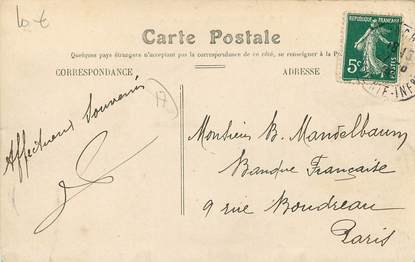 10 €
Carte Postale
Quelques pays étrangers n'acceptant pas la correspondance de ce côté, se renseigner à la
CORRESPONDANCE
ADRESSE
REPUBLIQUE FRANÇAISE
5c
POSTES
17
Affectueux Souvenirs
Monsieur B. Mandelbaum
Banque Française
9 rue Boudreau
Paris